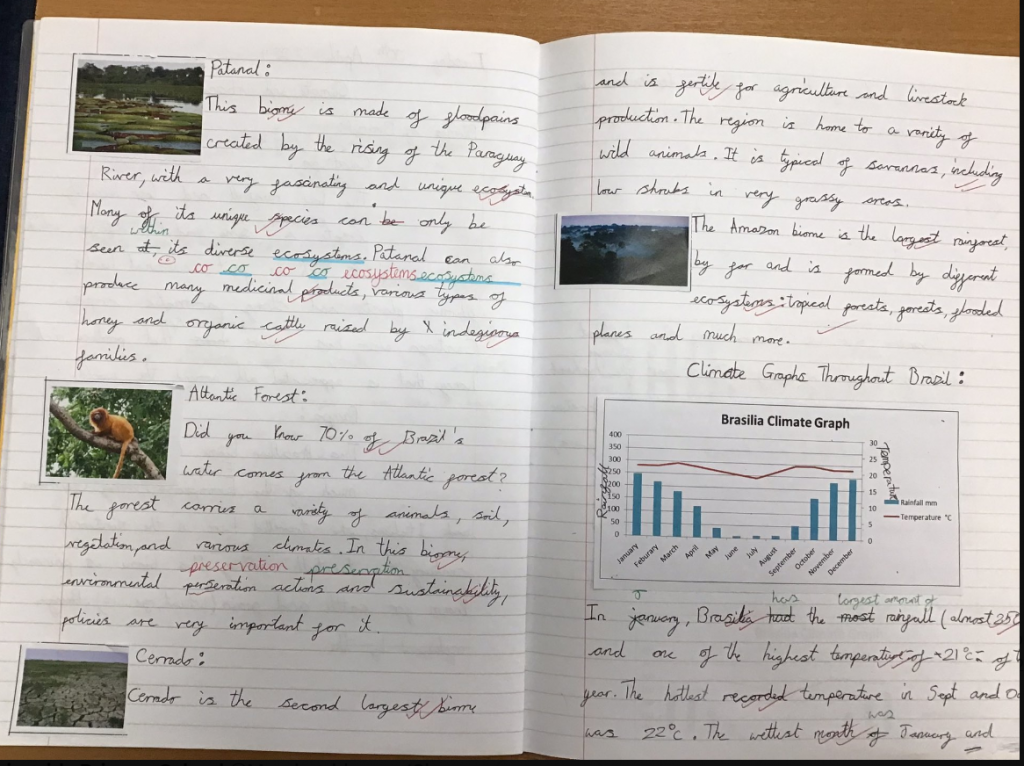 Patanal:
This biome is made of floodpains
created by the rising of the Paraguay
River, with a very fascinating and unique ecosystem.
Many of its unique species can be only be
within
seen at, its diverse ecosystems. Patanal can also
co co co co ecosystems ecosystems
produce many medicinal products, various types of
honey and organic cattle raised by X indeginous
families.
Atlantic Forest:
Did you know 70% of Brazil's
water comes from the Atlantic forest?
The forest carries a variety of animals, soil,
vegetation, and various climates. In this biome,
preservation preservation
environmental perseration actions and sustainability,
policies are very important for it.
Cerrado:
Cerrado is the second largest biome
and is fertile for agriculture and livestock
production. The region is home to a variety of
wild animals. It is typical of savannas, including
low shrubs in very grassy areas.
The Amazon biome is the largest rainforest,
by far and is formed by different
ecosystems: tropical forests, forests, flooded
planes and much more.
Climate Graphs Throughout Brazil:
Brasilia Climate Graph
400
350
300
250
200
150
100
50
0
Rainfall
30
25
20
15
10
5
0
Temperature
Rainfall mm
Temperature °C
January
Feburary
March
April
May
June
July
August
September
October
November
December
J has largest amount of
In january, Brasilia had the most rainfall (almost 350
and one of the highest temperature of ~21°c of
year. The hottest recorded temperature in Sept and
was 22°c. The wettest month of January and
was